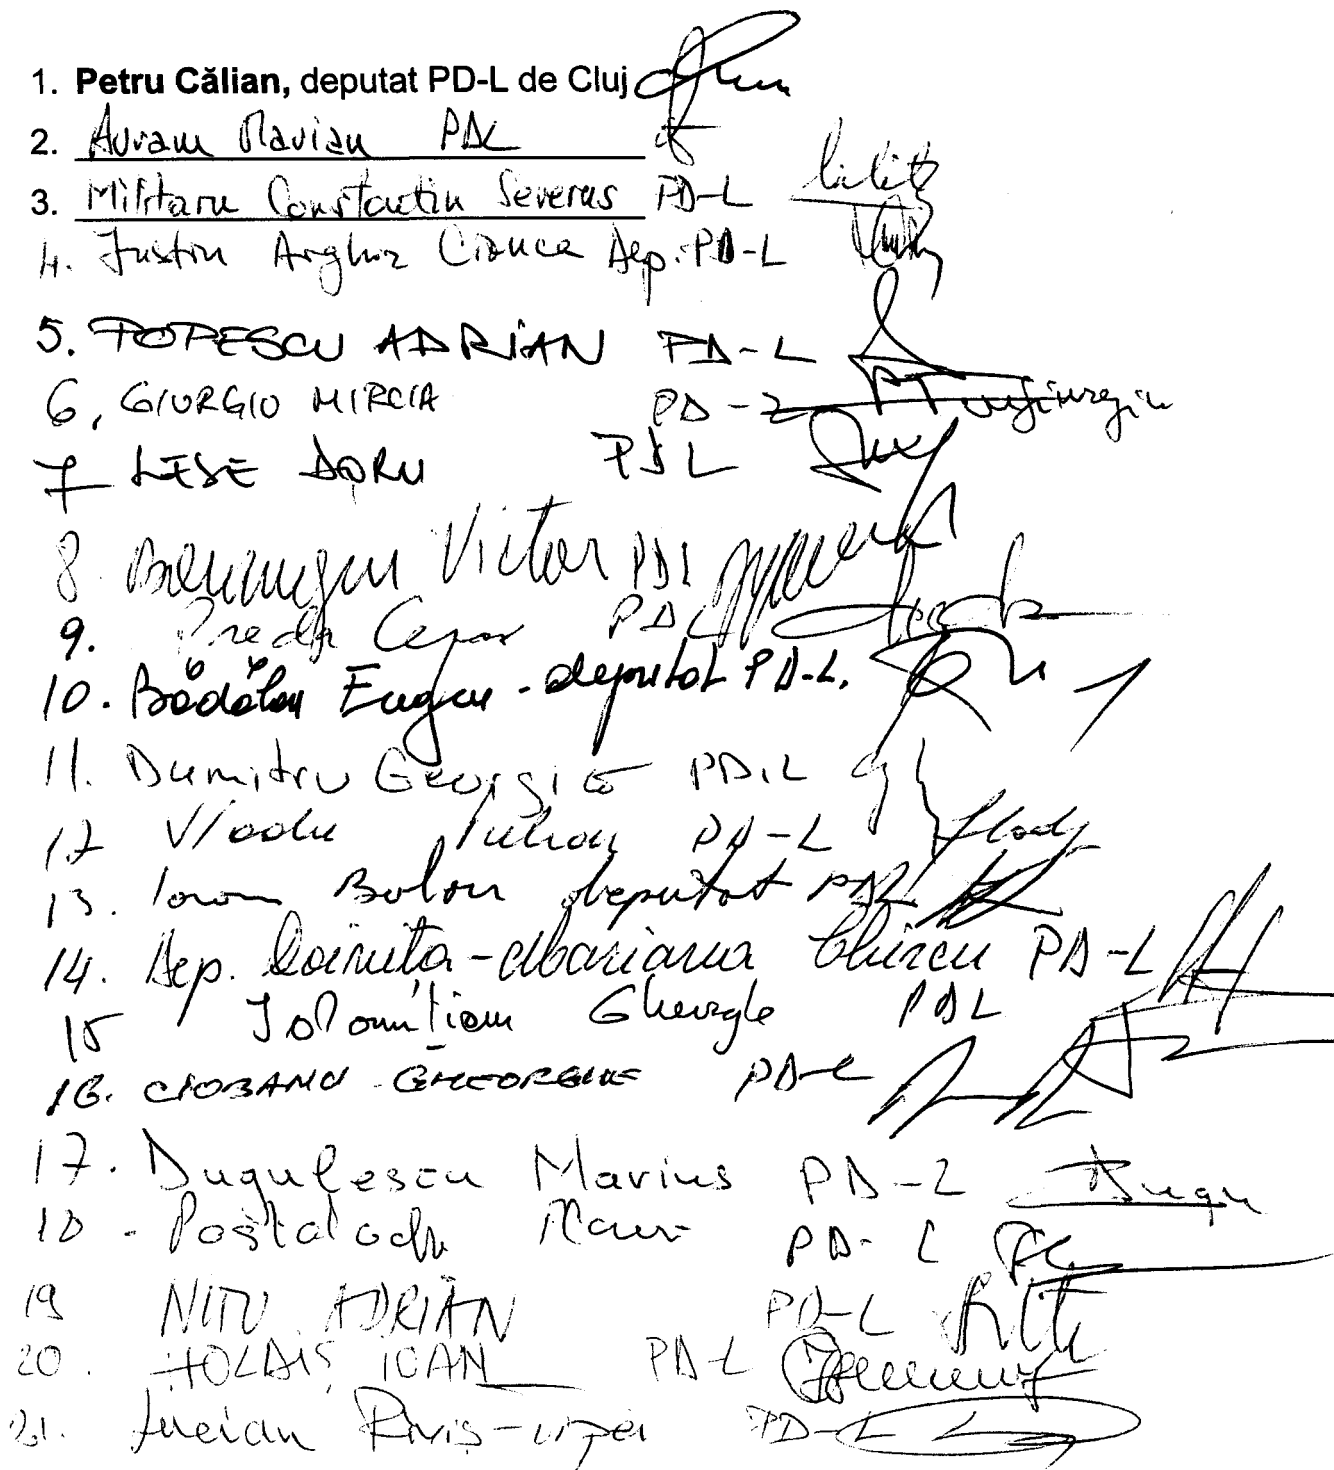 1. Petru Călian, deputat PD-L de Cluj
2. Avram Marian PDL
3. Militaru Constantin Severus PD-L
4. Justin Arghir Cionca Dep. PD-L
5. POPESCU ADRIAN PD-L
6, GIURGIU MIRCIA PD-L
7 LESE DORU PDL
8. Victor PDL
9. Preda Cezar PDL
10. Bădălan Eugen - deputat PD-L.
11. Dumitru Georgică PD.L
12 Vladu Iulian PD-L
13. Ioan Bolou deputat PDL
14. Dep. Doinița-Mariana Chircu PD-L
15 Ialomițianu Gheorghe PDL
16. CIOBANU GHEORGHE PD-L
17. Dugulescu Marius PD-L
18. Postolachi PD-L
19 NIȚU ADRIAN PD-L
20. HOLDIȘ IOAN PD-L
21. Lucian Riviș-Tipei PD-L